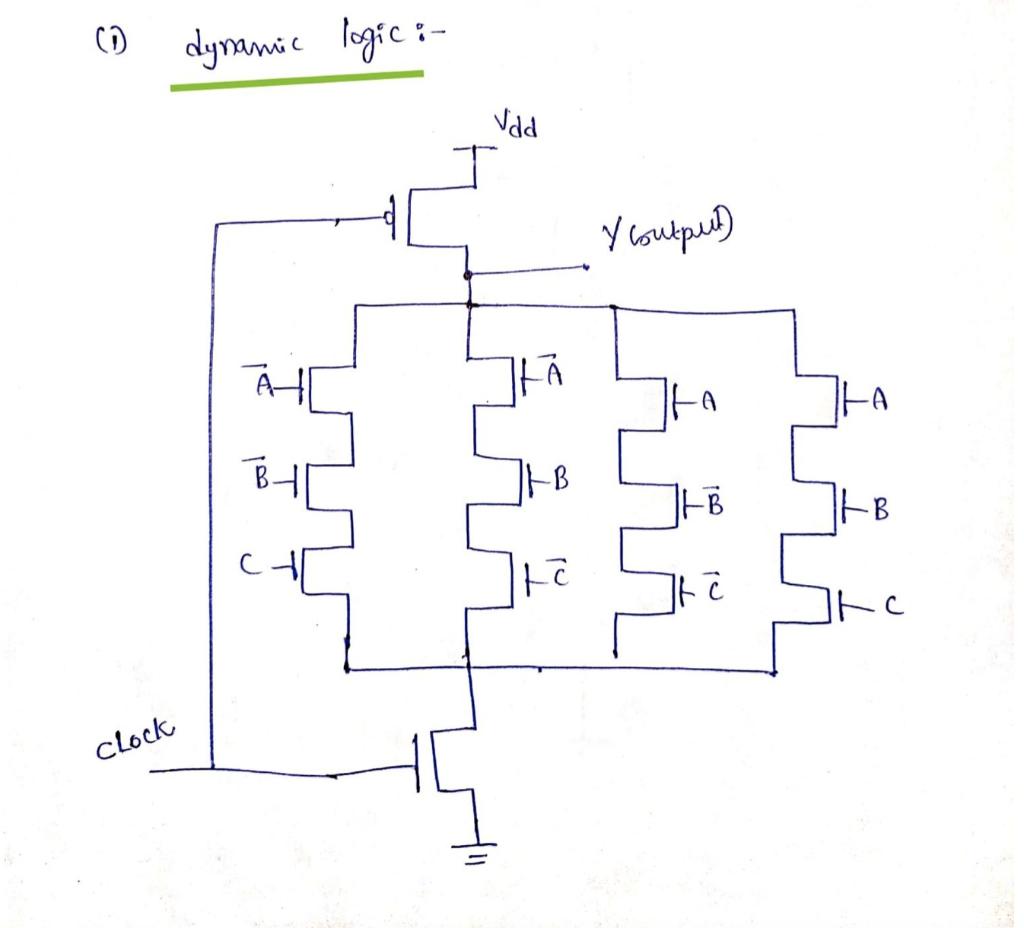 (i) dynamic logic :-
Vdd
Y (output)
A̅ A̅ A A
B̅ B B̅ B
C C̅ C̅ C
CLOCK